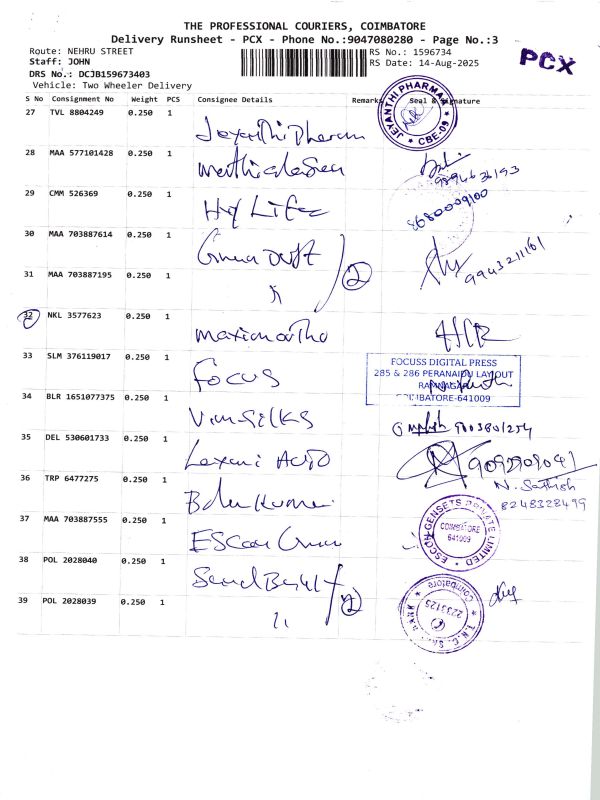 THE PROFESSIONAL COURIERS, COIMBATORE
Delivery Runsheet - PCX - Phone No.:9047080280 - Page No.:3
Route: NEHRU STREET
RS No.: 1596734
Staff: JOHN
RS Date: 14-Aug-2025
PCX
DRS No.: DCJB159673403
Vehicle: Two Wheeler Delivery
S No Consignment No Weight PCS Consignee Details Remarks Seal & Signature
27 TVL 8804249 0.250 1
JEYANTHI PHARMA
CBE-09
28 MAA 577101428 0.250 1
9894636193
29 CMM 526369 0.250 1 Hy Life
8680009100
30 MAA 703887614 0.250 1
2
9943211161
31 MAA 703887195 0.250 1 "
32 NKL 3577623 0.250 1
33 SLM 376119017 0.250 1 Focus
FOCUSS DIGITAL PRESS
285 & 286 PERANAIDU LAYOUT
RAMNAGAR
COIMBATORE-641009
34 BLR 1651077375 0.250 1 Vim Silks
35 DEL 530601733 0.250 1 Laxmi Auto
36 TRP 6477275 0.250 1
N. Sathish
8248328499
37 MAA 703887555 0.250 1
ESCON GENSETS PRIVATE LIMITED
COIMBATORE
641009
38 POL 2028040 0.250 1
2
39 POL 2028039 0.250 1 "
Coimbatore
2233125